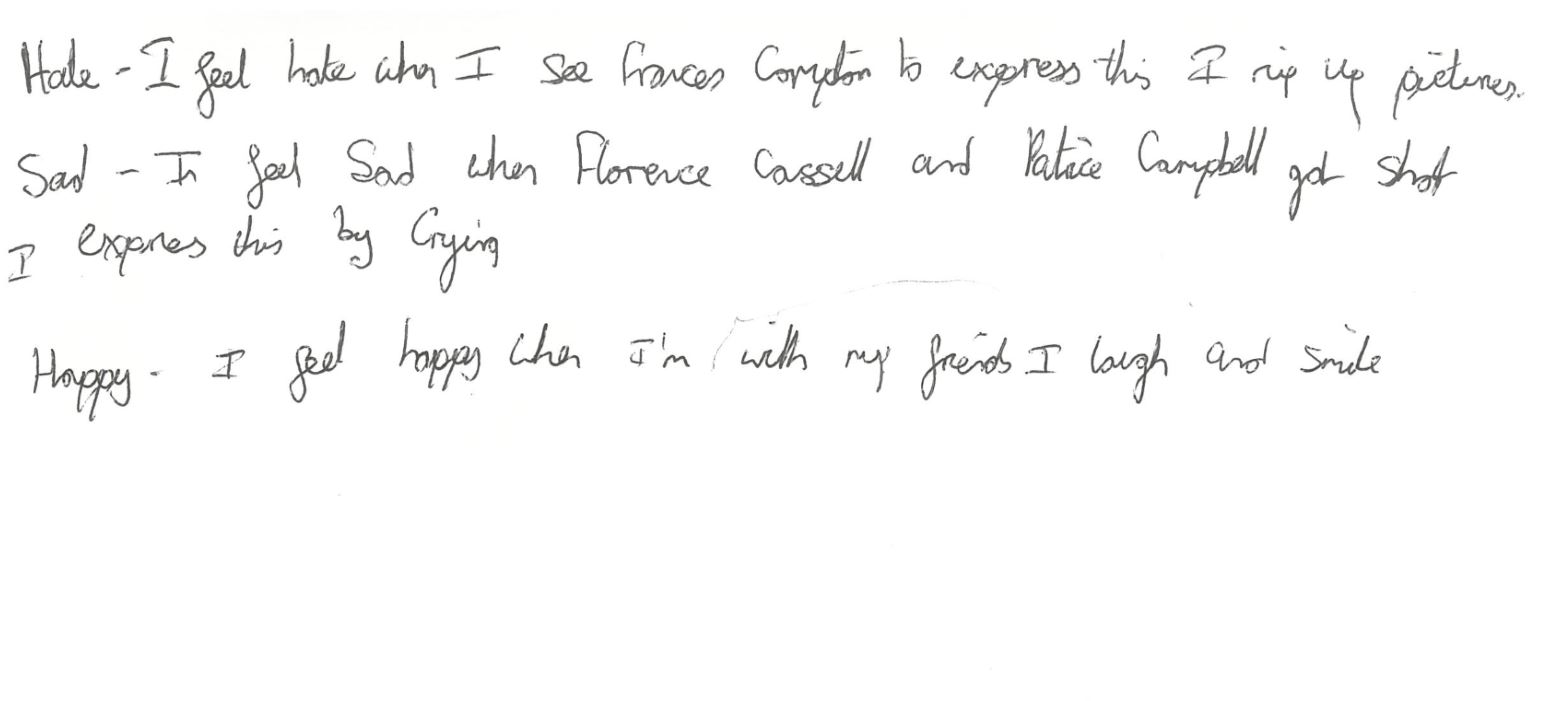 Hate - I feel hate when I see Frances Compton to express this I rip up pictures.
Sad - In feel Sad when Florence Cassell and Patrice Campbell got shot
I expores this by Crying
Happy - I feel happy when I'm with my freinds I laugh and smile